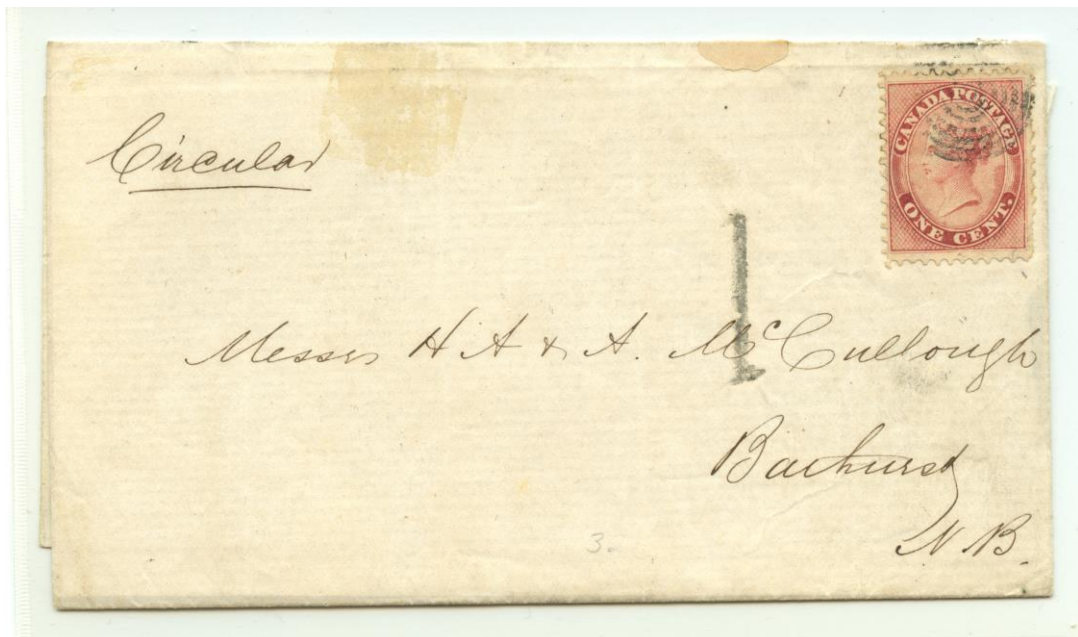 Circular
CANADA POSTAGE
ONE CENT.
1
Messrs H A & A. McCullough
Bathurst
N.B.
3.